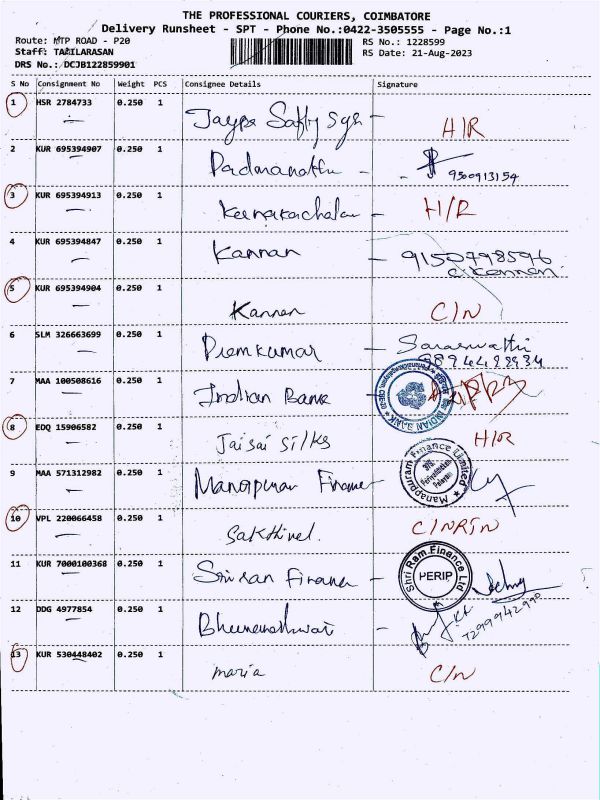 THE PROFESSIONAL COURIERS, COIMBATORE
Delivery Runsheet - SPT - Phone No.:0422-3505555 - Page No.:1
Route: MTP ROAD - P20 RS No.: 1228599
Staff: TAMILARASAN RS Date: 21-Aug-2023
DRS No.: DCJB122859901
S No Consignment No Weight PCS Consignee Details Signature
1 HSR 2784733 0.250 1 H/R
2 KUR 695394907 0.250 1 Padmanathn - 9500913154
3 KUR 695394913 0.250 1 - H/R
4 KUR 695394847 0.250 1 Kannan - 9150798596
C. Kannan.
5 KUR 695394904 0.250 1 Kannan C/N
6 SLM 326663699 0.250 1 Premkumar - Saraswathi
9894498934
7 MAA 100508616 0.250 1 Indian Bank INDIAN BANK
8 EDQ 15906582 0.250 1 Jaisai Silks H/R
9 MAA 571312982 0.250 1 Manappuram Finance Manappuram Finance Limited
10 VPL 220066458 0.250 1 Sakthivel. C/NR/N
11 KUR 7000100368 0.250 1 Sriram Finance - Shri Ram Finance Ltd
PERIP
12 DDG 4977854 0.250 1 Bhuvaneshwari
13 KUR 530448402 0.250 1 maria C/N